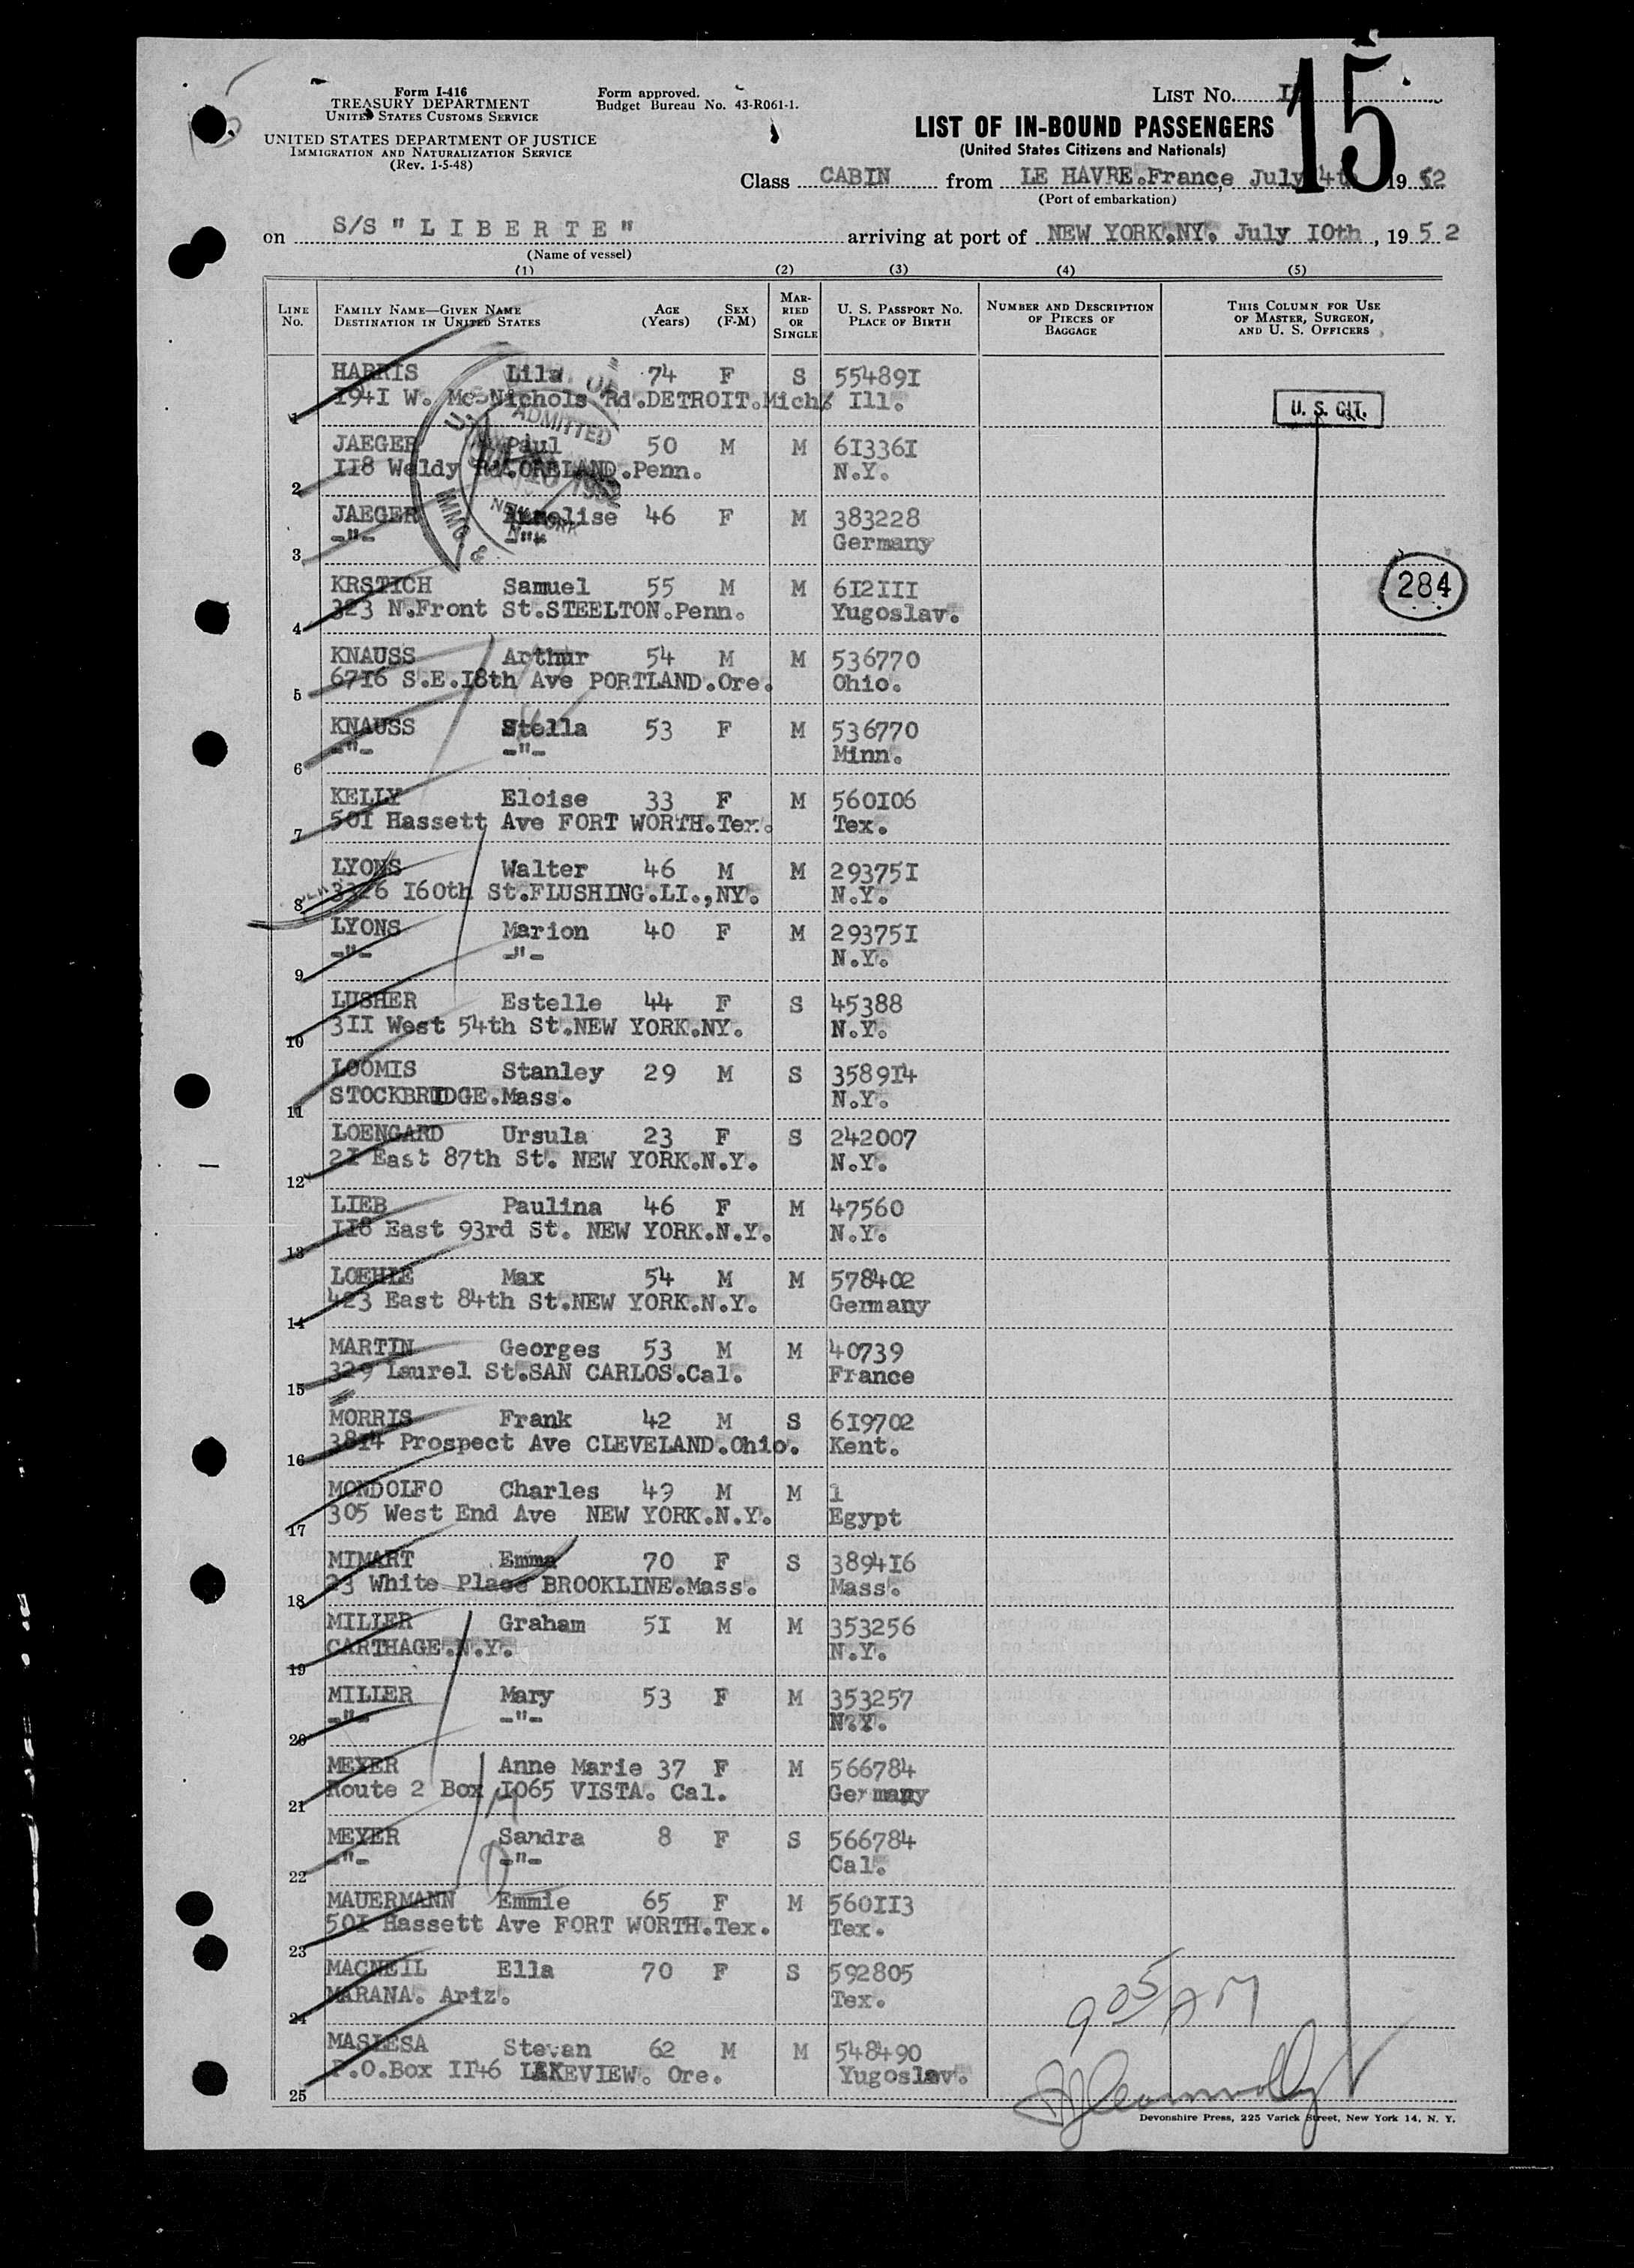 Form I-416
TREASURY DEPARTMENT
UNITED STATES CUSTOMS SERVICE
UNITED STATES DEPARTMENT OF JUSTICE
IMMIGRATION AND NATURALIZATION SERVICE
(Rev. 1-5-48)
Form approved.
Budget Bureau No. 43-R061-1.
LIST No. I
15
LIST OF IN-BOUND PASSENGERS
(United States Citizens and Nationals)
Class CABIN from LE HAVRE.France, July 4th 1952
(Port of embarkation)
on S/S "LIBERTE" arriving at port of NEW YORK.NY. July IOth, 1952
(Name of vessel)
(1) (2) (3) (4) (5)
LINE No. FAMILY NAME—GIVEN NAME DESTINATION IN UNITED STATES AGE (Years) SEX (F-M) MARRIED OR SINGLE U. S. PASSPORT No. PLACE OF BIRTH NUMBER AND DESCRIPTION OF PIECES OF BAGGAGE THIS COLUMN FOR USE OF MASTER, SURGEON, AND U. S. OFFICERS
HARRIS Lila 74 F S 55489I
1 I94I W. Mc Nichols Rd.DETROIT.Mich. Ill.
U. S. CIT.
ADMITTED
NEW YORK
JAEGER Paul 50 M M 6I336I
2 II8 Weldy Rd.ORELAND.Penn. N.Y.
JAEGER Annelise 46 F M 383228
3 -"- -"- Germany
284
KRSTICH Samuel 55 M M 6I2III
4 323 N.Front St.STEELTON.Penn. Yugoslav.
KNAUSS Arthur 54 M M 536770
5 67I6 S.E.I8th Ave PORTLAND.Ore. Ohio.
KNAUSS Stella 53 F M 536770
6 -"- -"- Minn.
KELLY Eloise 33 F M 560I06
7 50I Hassett Ave FORT WORTH.Tex. Tex.
LYONS Walter 46 M M 29375I
8 3326 I60th St.FLUSHING.LI.,NY. N.Y.
LYONS Marion 40 F M 29375I
9 -"- -"- N.Y.
LUSHER Estelle 44 F S 45388
10 3II West 54th St.NEW YORK.NY. N.Y.
LOOMIS Stanley 29 M S 3589I4
11 STOCKBRIDGE.Mass. N.Y.
LOENGARD Ursula 23 F S 242007
12 2I East 87th St. NEW YORK.N.Y. N.Y.
LIEB Paulina 46 F M 47560
13 II8 East 93rd St. NEW YORK.N.Y. N.Y.
LOEHLE Max 54 M M 578402
14 423 East 84th St.NEW YORK.N.Y. Germany
MARTIN Georges 53 M M 40739
15 329 Laurel St.SAN CARLOS.Cal. France
MORRIS Frank 42 M S 6I9702
16 38I4 Prospect Ave CLEVELAND.Ohio. Kent.
MONDOLFO Charles 49 M M 1
17 305 West End Ave NEW YORK.N.Y. Egypt
MIMART Emma 70 F S 3894I6
18 23 White Place BROOKLINE.Mass. Mass.
MILLER Graham 5I M M 353256
19 CARTHAGE.N.Y. N.Y.
MILLER Mary 53 F M 353257
20 -"- -"- N.Y.
MEYER Anne Marie 37 F M 566784
21 Route 2 Box I065 VISTA. Cal. Germany
MEYER Sandra 8 F S 566784
22 -"- -"- Cal.
MAUERMANN Emmie 65 F M 560II3
23 50I Hassett Ave FORT WORTH.Tex. Tex.
MACNEIL Ella 70 F S 592805
24 MARANA. Ariz. Tex.
MASLESA Stevan 62 M M 548490
25 P.O.Box II46 LAKEVIEW. Ore. Yugoslav.
905 AM
Devonshire Press, 225 Varick Street, New York 14, N. Y.